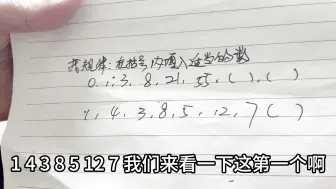 找规律:在括号内填入适当的数
0,1,3,8,21,55,( ),( )
1,4,3,8,5,12,7( )
14385127我们来看一下这第一个啊